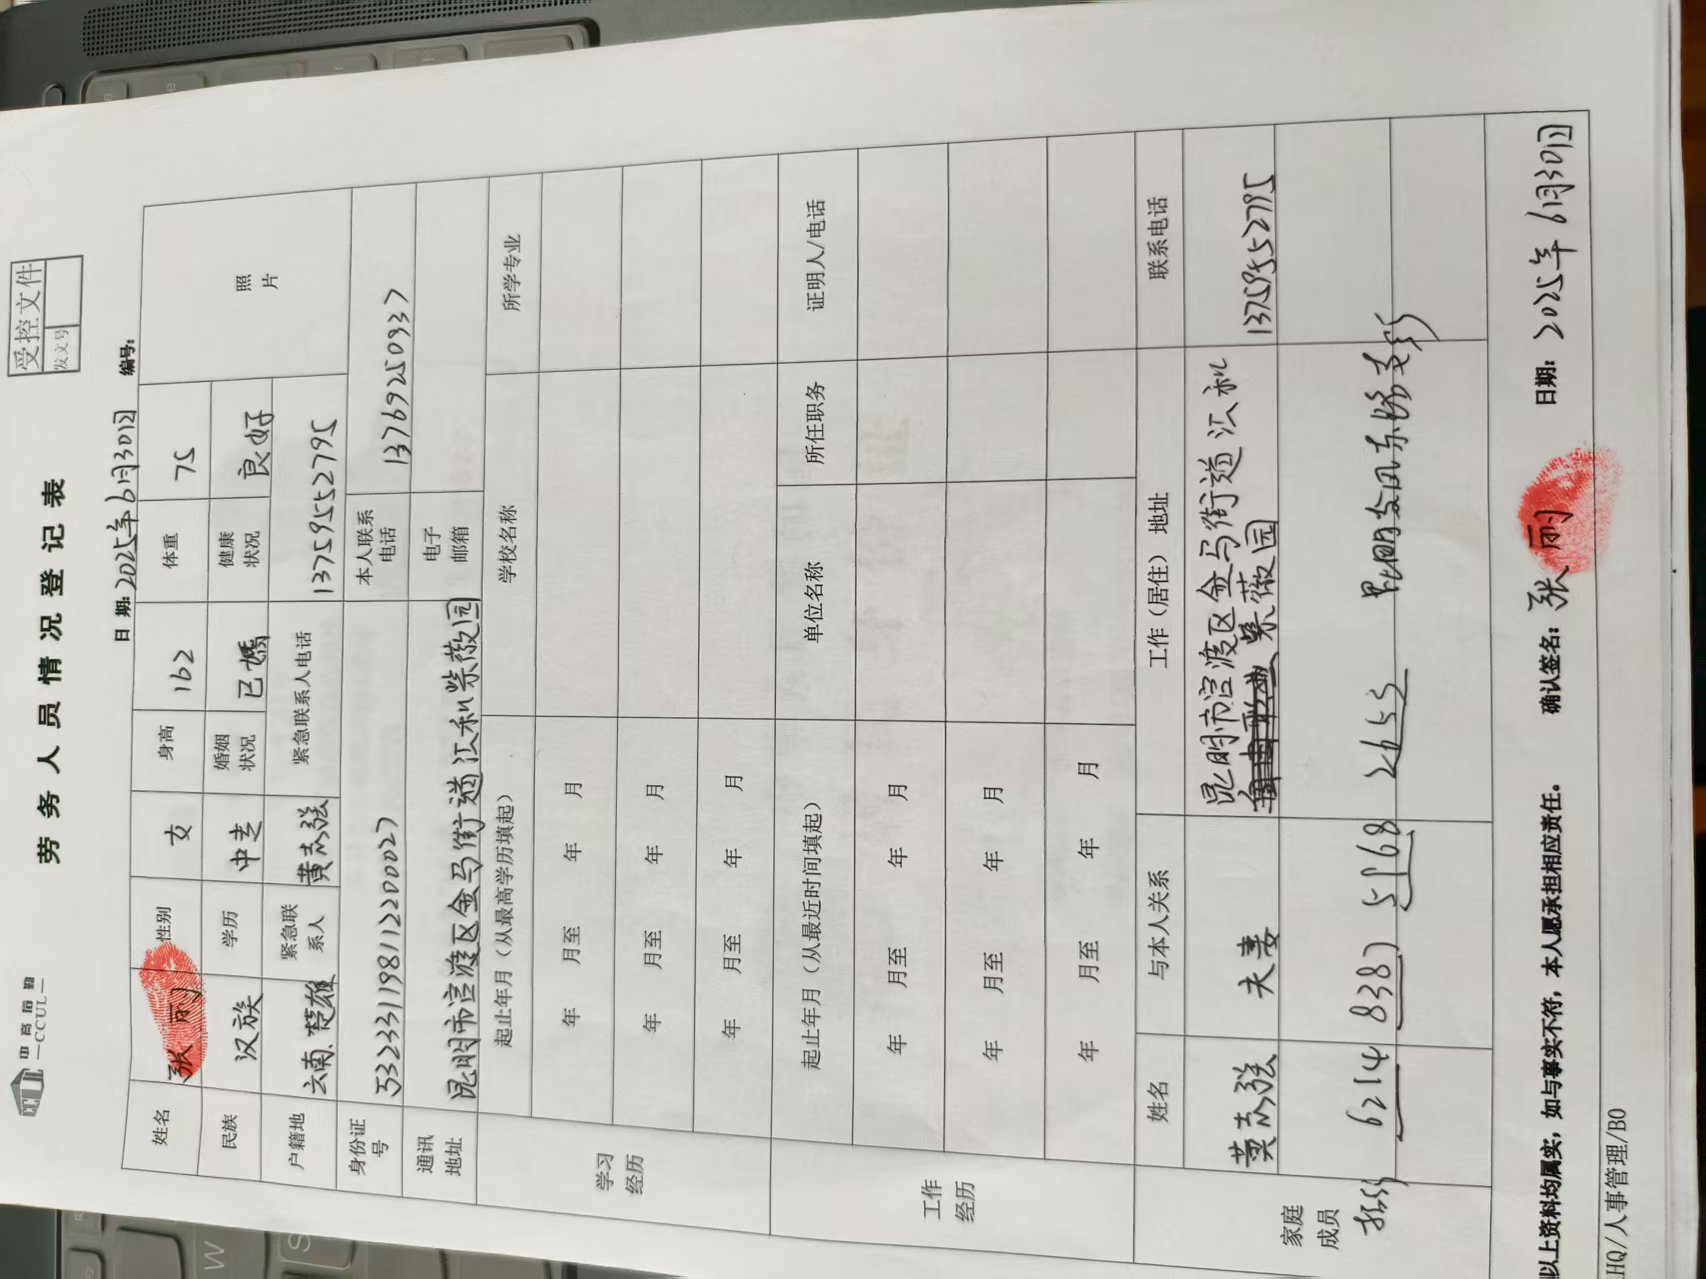 中高后勤
—CCUL—
受控文件
发文号
劳务人员情况登记表
日期:2025年6月30日 编号:
姓名 张丽 性别 女 身高 162 体重 75 照片
民族 汉族 学历 中专 婚姻状况 已婚 健康状况 良好
户籍地 云南.楚雄 紧急联系人 黄志强 紧急联系人电话 13759552795
身份证号 532331198112200027 本人联系电话 13769250937
通讯地址 昆明市官渡区金马街道汇和紫薇园 电子邮箱
学习经历 起止年月(从最高学历填起) 学校名称 所学专业
年 月至 年 月
年 月至 年 月
年 月至 年 月
工作经历 起止年月(从最近时间填起) 单位名称 所任职务 证明人/电话
年 月至 年 月
年 月至 年 月
年 月至 年 月
家庭成员 姓名 与本人关系 工作(居住)地址 联系电话
黄志强 夫妻 昆明市官渡区金马街道汇和紫薇园 13759552795
6214 8387 5168 2653 昆明
以上资料均属实,如与事实不符,本人愿承担相应责任。 确认签名:张丽 日期:2025年6月30日
HQ/人事管理/B0